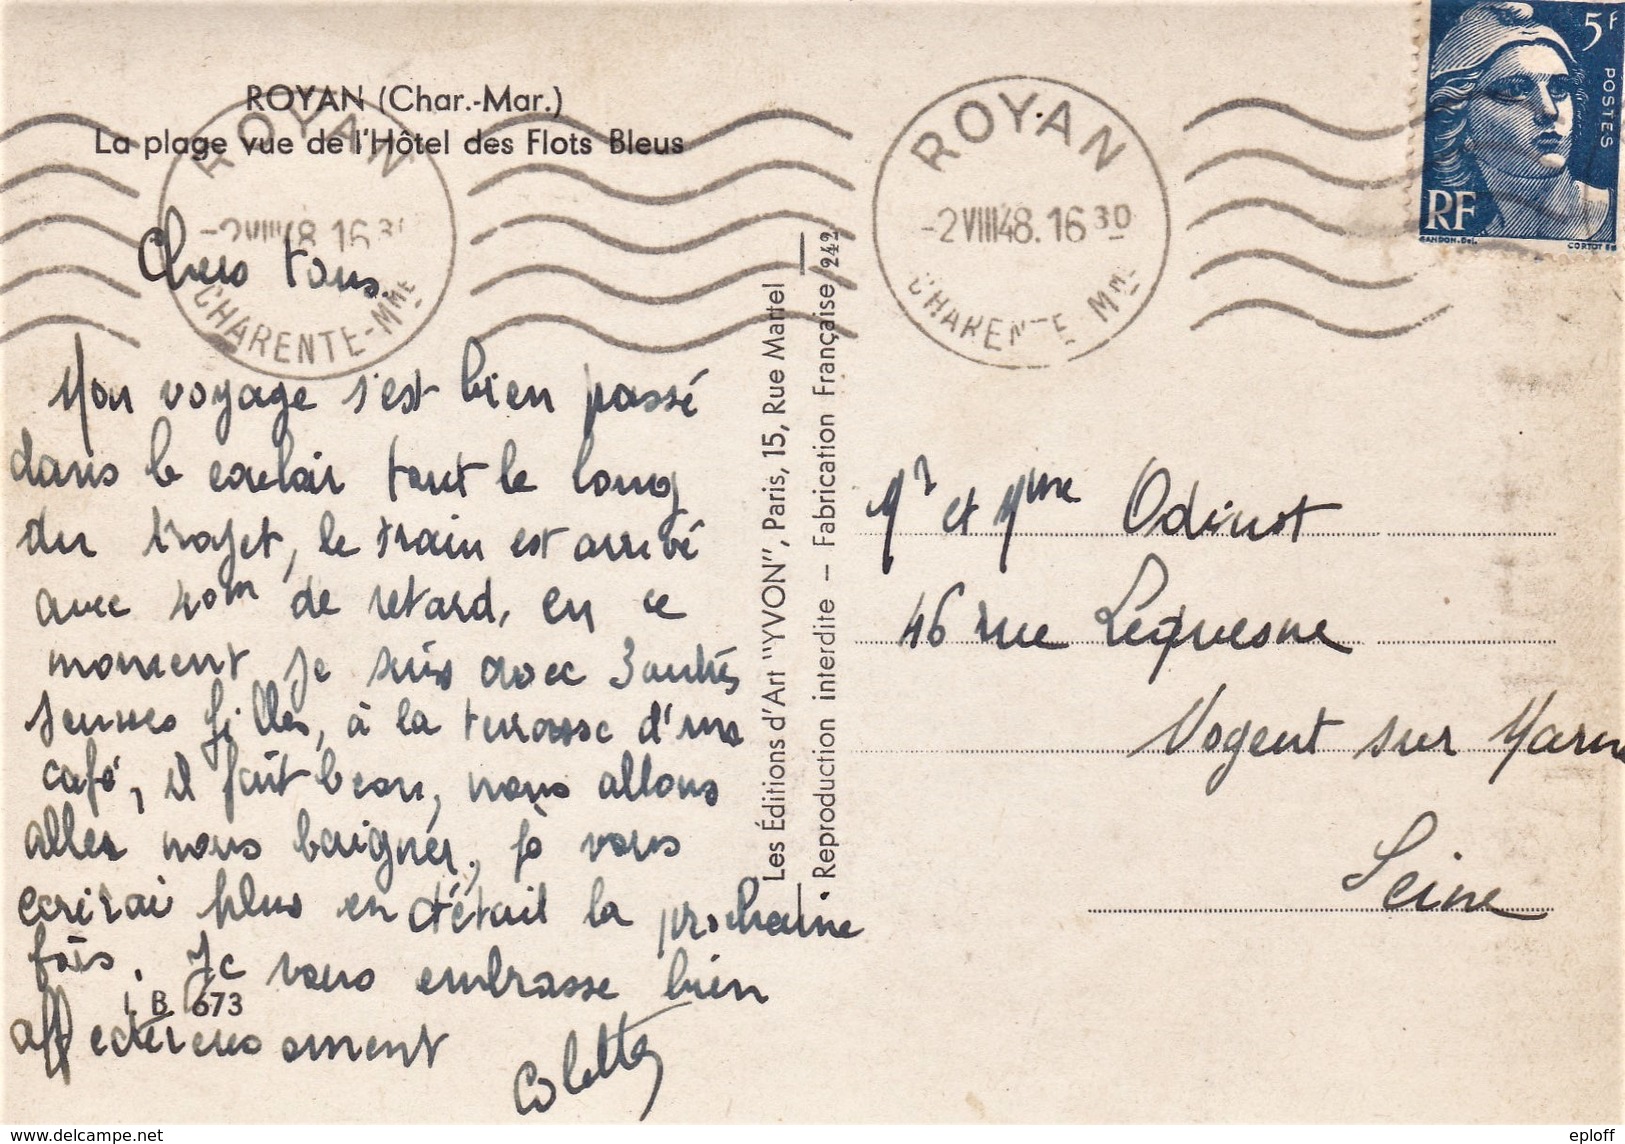 ROYAN (Char.-Mar.)
La plage vue de l'Hôtel des Flots Bleus
ROYAN
-2 VIII 48. 16 30
CHARENTE-Mme
ROYAN
-2 VIII 48. 16 30
CHARENTE Mme
5F
POSTES
RF
GANDON. Del.
CORTOT
Chers tous.
Mon voyage s'est bien passé
dans le couloir tout le long
du trajet, le train est arrivé
avec 40m de retard, en ce
moment je suis avec 3 autres
jeunes filles, à la terrasse d'un
café, il fait beau, nous allons
aller nous baigner, je vous
ecrirai plus en détail la prochaine
fois. Je vous embrasse bien
affectueusement
Colette
I. B. 673
Les Éditions d'Art "YVON", Paris, 15, Rue Martel
• Reproduction interdite – Fabrication Française 242
Mr et Mme Odinot
46 rue Lequesne
Nogent sur Marne
Seine
© www.delcampe.net
eploff